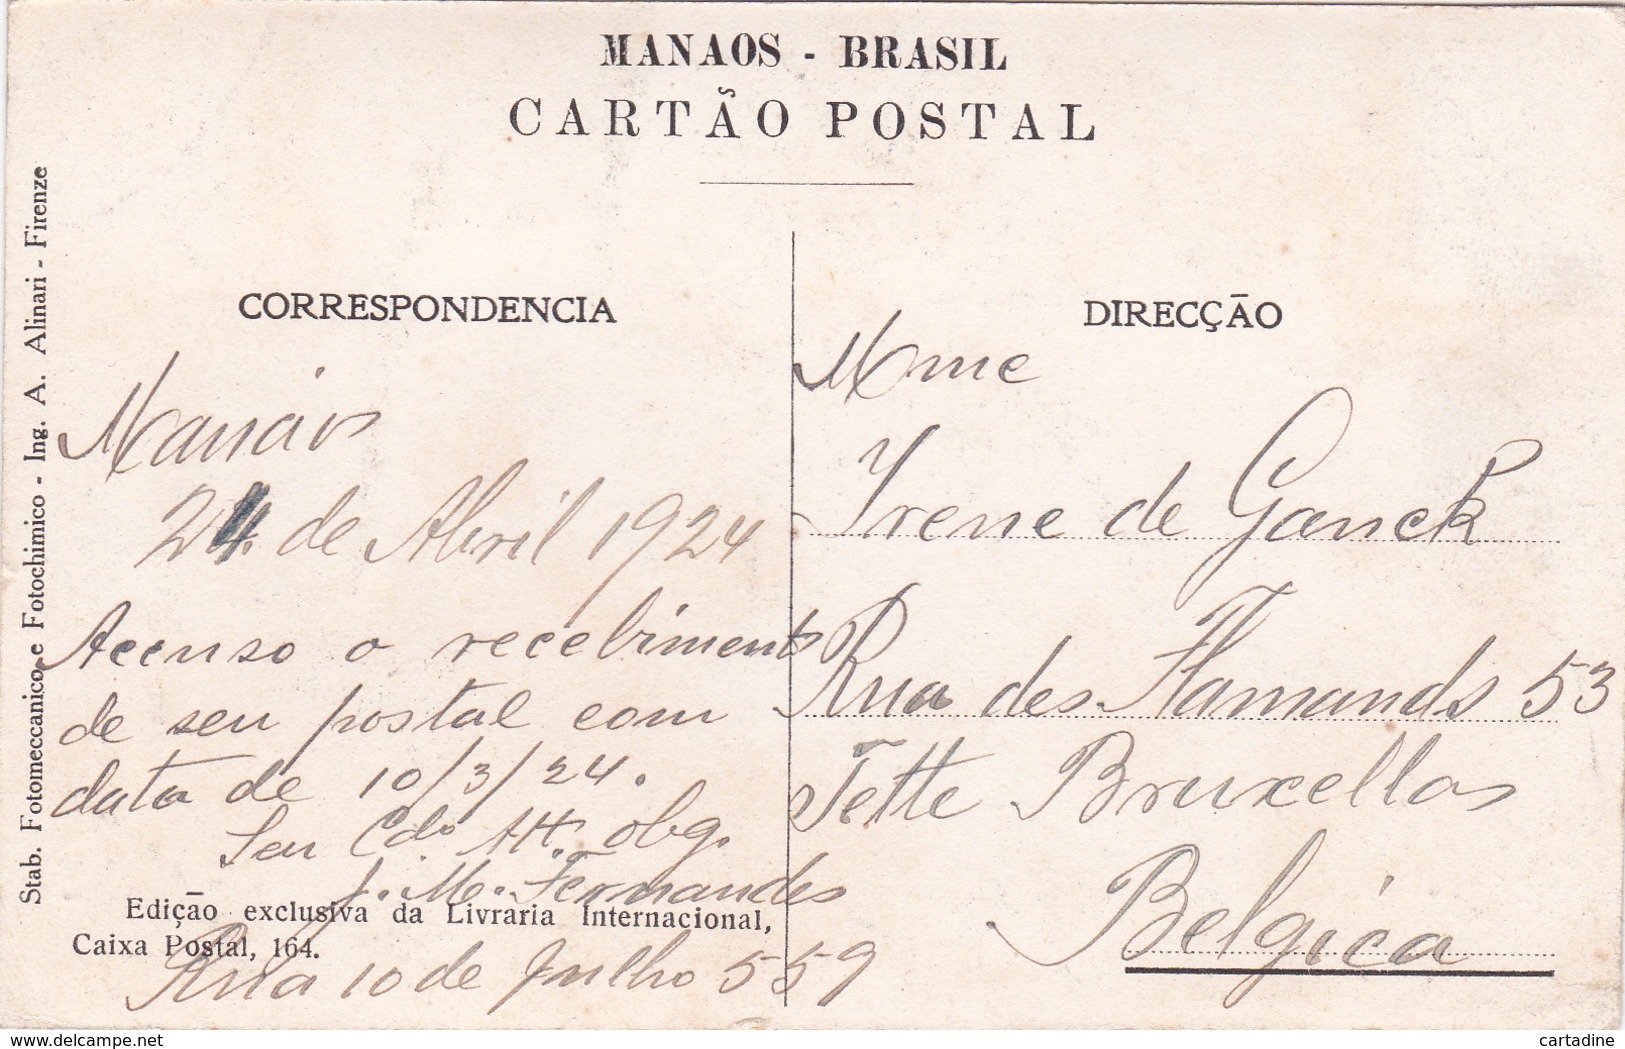 MANAOS - BRASIL
CARTÃO POSTAL
Stab. Fotomeccanico e Fotochimico - Ing. A. Alinari - Firenze
CORRESPONDENCIA
Manáos
24 de Abril 1924
Accuso o recebimento
de seu postal com
data de 10/3/24.
Seu Cdo. Att. obg.
J. M. Fernandes
Edição exclusiva da Livraria Internacional,
Caixa Postal, 164.
Rua 10 de Julho 559
DIRECÇÃO
Mme
Irene de Ganck
Rua des Flamands 53
Jette Bruxellas
Belgica
delcampe.net
cartadine